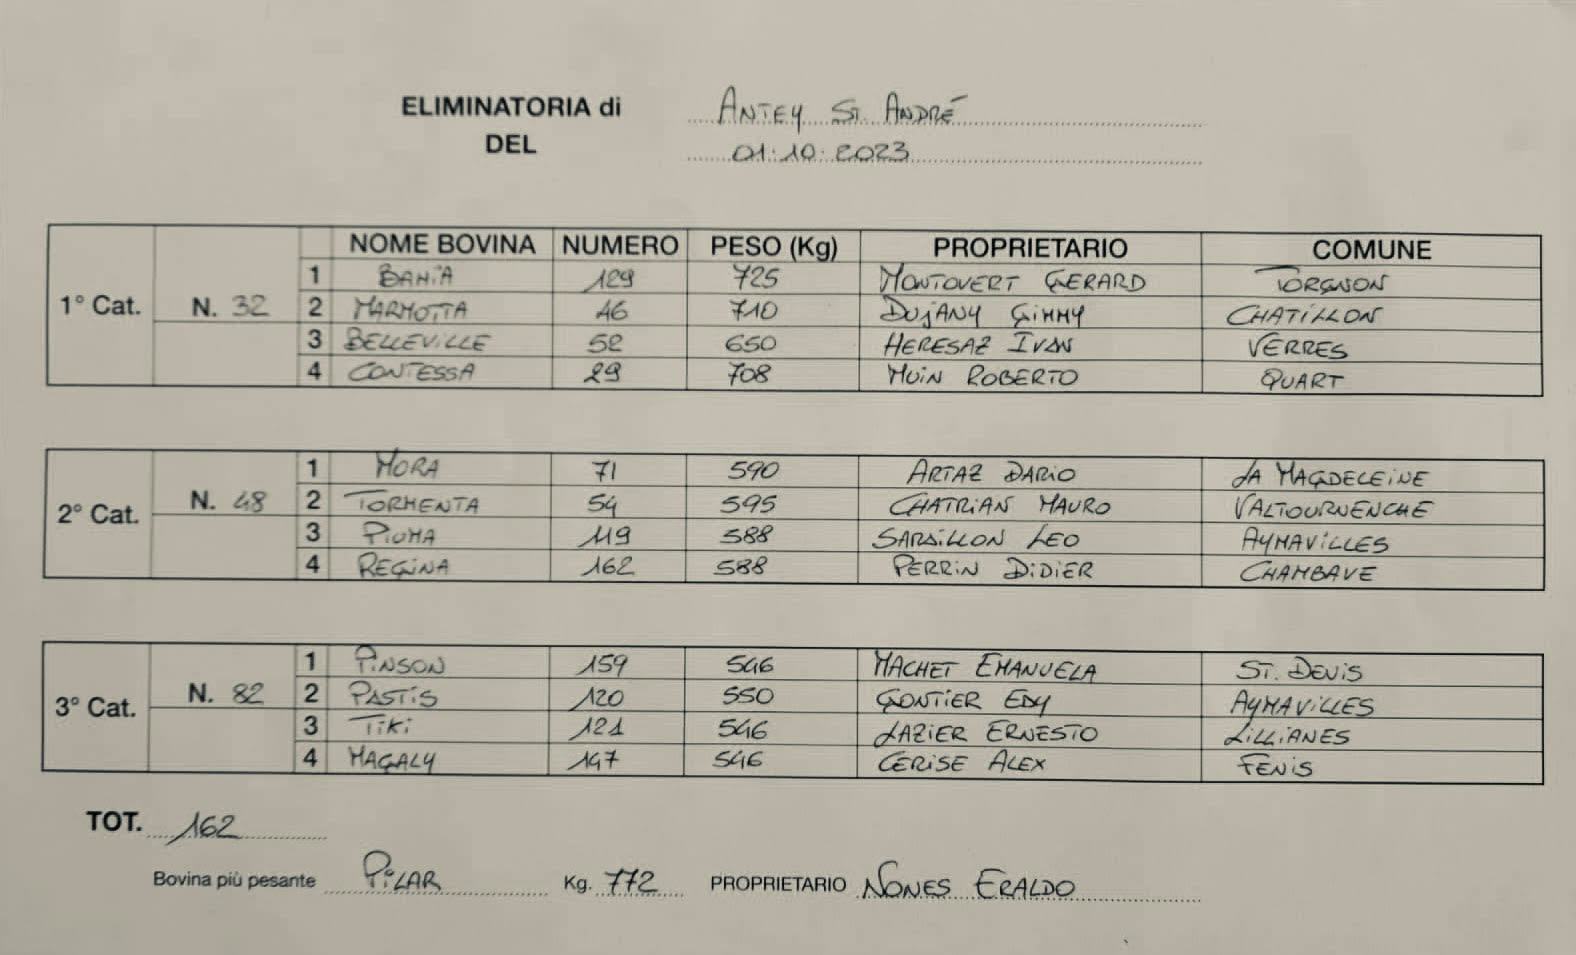 ELIMINATORIA di ANTEY ST. ANDRÉ
DEL 01.10.2023
NOME BOVINA NUMERO PESO (Kg) PROPRIETARIO COMUNE
1° Cat. N. 32
1 BAHIA 129 725 MONTOVERT GERARD TORGNON
2 MARMOTTA 46 710 DUJANY GIMMY CHATILLON
3 BELLEVILLE 52 650 HERESAZ IVAN VERRES
4 CONTESSA 29 708 MUIN ROBERTO QUART
2° Cat. N. 48
1 MORA 71 590 ARTAZ DARIO LA MAGDELEINE
2 TORMENTA 54 595 CHATRIAN MAURO VALTOURNENCHE
3 PIUMA 119 588 SARAILLON LEO AYMAVILLES
4 REGINA 162 588 PERRIN DIDIER CHAMBAVE
3° Cat. N. 82
1 PINSON 159 546 MACHET EMANUELA ST. DENIS
2 PASTIS 120 550 GONTIER EDY AYMAVILLES
3 TIKI 121 546 LAZIER ERNESTO LILLIANES
4 MAGALY 147 546 CERISE ALEX FENIS
TOT. 162
Bovina più pesante PILAR Kg. 772 PROPRIETARIO NONES ERALDO